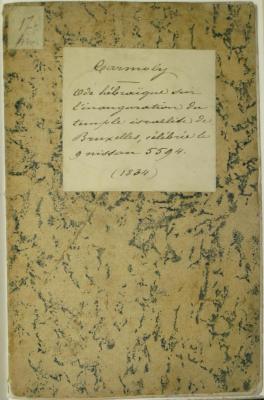 Carmoly
Ode hébraïque sur
l'inauguration du
temple israélite de
Bruxelles, célébrée le
9 nissan 5594.
(1834)